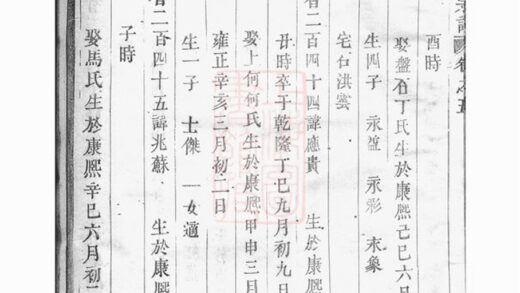 譜卷之五
酉時
娶盤石丁氏生於康熙己巳六月
生四子 永盈 永彩 永象
宅石洪雲
二百四十四諱應貴 生於康熙
丑時卒于乾隆丁巳九月初九日
娶上何何氏生於康熙甲申三月
雍正辛亥三月初二日
生一子 士傑 一女適
二百四十五諱兆蘇 生於康熙
子時
娶馬氏生於康熙辛巳六月初